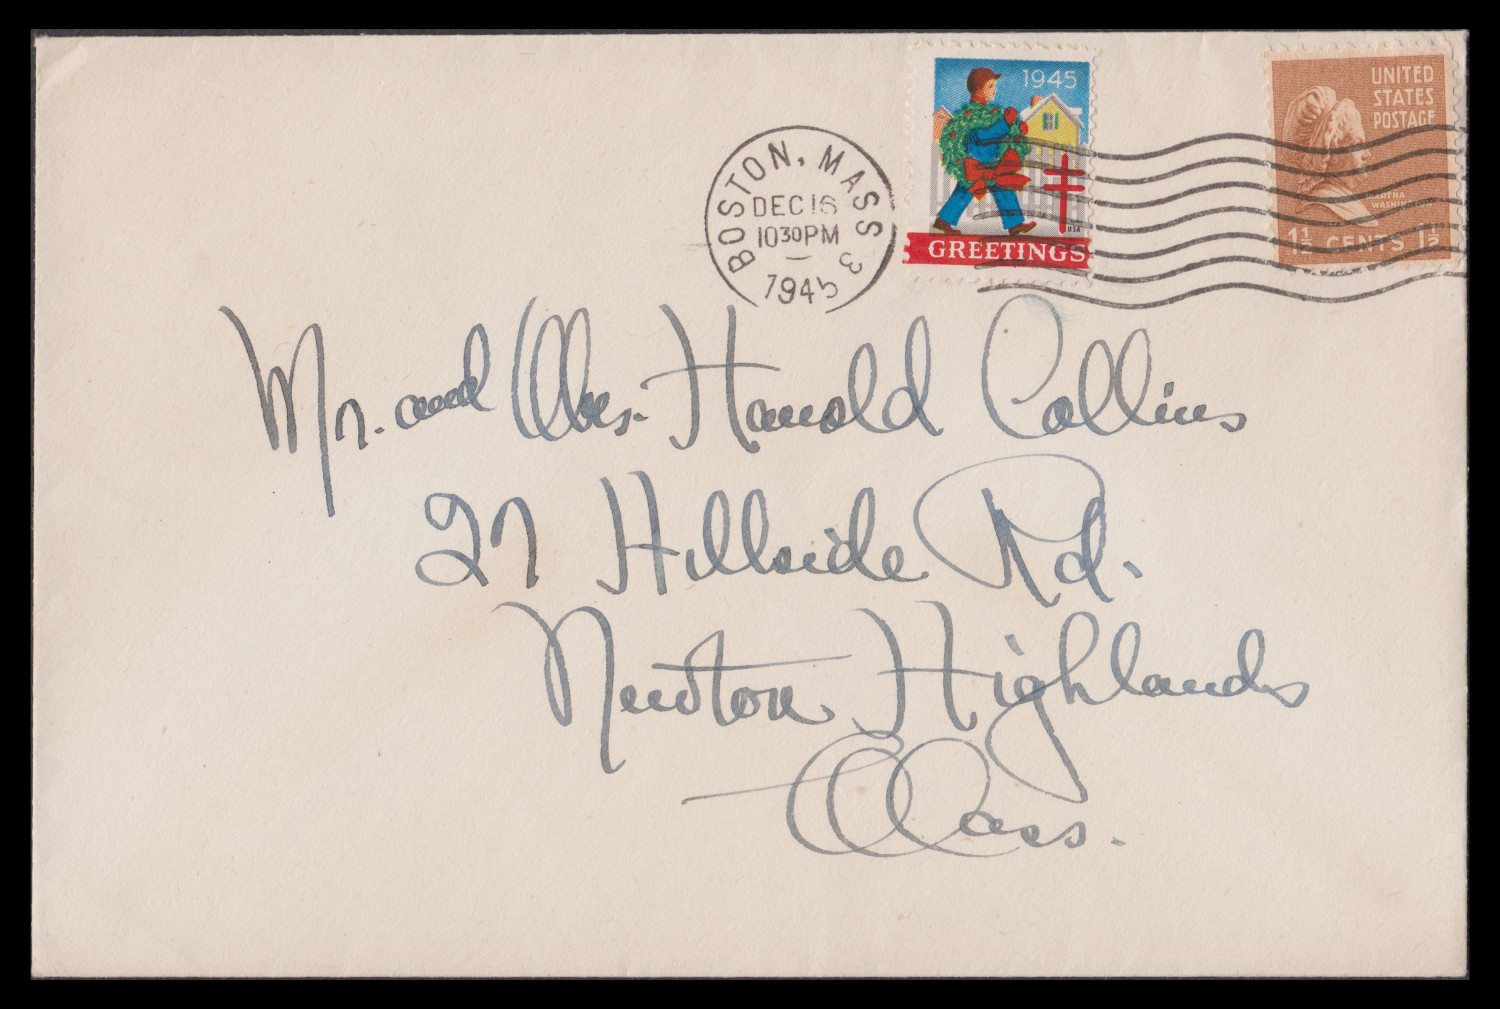 BOSTON, MASS 3
DEC 16
10 30 PM
1945
1945
GREETINGS
USA
UNITED
STATES
POSTAGE
MARTHA
WASHINGTON
1½ CENTS 1½
Mr. and Mrs. Harold Collins
27 Hillside Rd.
Newton Highlands
Mass.